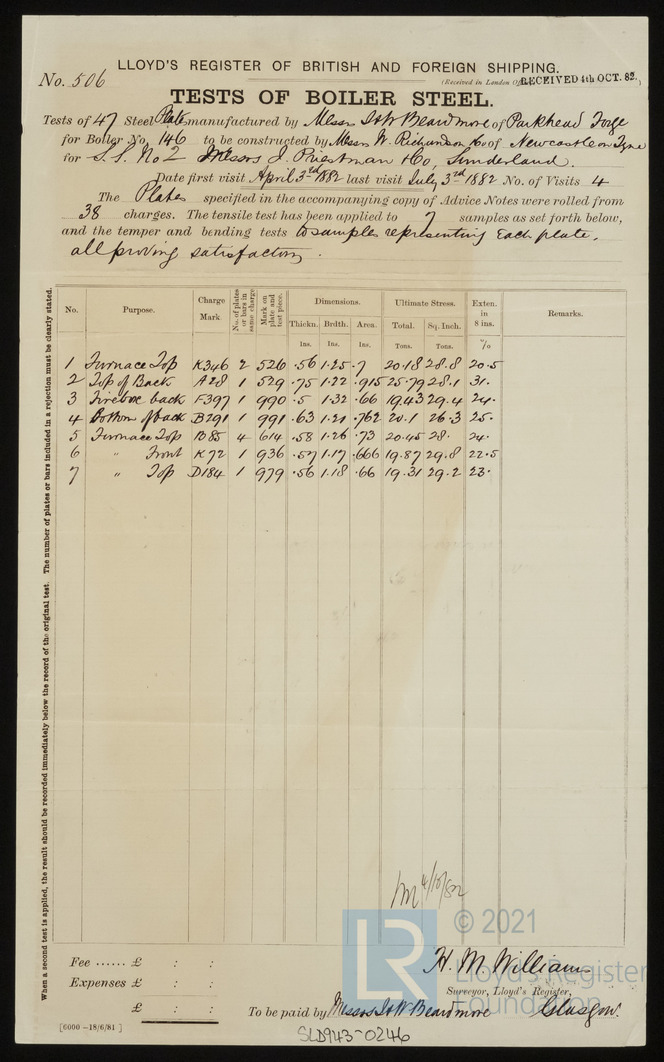 LLOYD'S REGISTER OF BRITISH AND FOREIGN SHIPPING.
No. 506
(Received in London RECEIVED 4th OCT. 82.
TESTS OF BOILER STEEL.
Tests of 47 Steel Plates manufactured by Messrs I & W Beardmore of Parkhead Forge
for Boiler No. 146 to be constructed by Messrs W. Richardson & Co of Newcastle on Tyne
for S.S. No 2 Messrs J. Priestman & Co, Sunderland.
Date first visit April 3rd 1882 last visit July 3rd 1882 No. of Visits 4
The Plates specified in the accompanying copy of Advice Notes were rolled from
38 charges. The tensile test has been applied to 7 samples as set forth below,
and the temper and bending tests to samples representing each plate,
all proving satisfactory.
When a second test is applied, the result should be recorded immediately below the record of the original test. The number of plates or bars included in a rejection must be clearly stated.
No. Purpose. Charge Mark. No. of plates or bars in same charge Mark on plate and test piece. Dimensions. Ultimate Stress. Exten. in 8 ins. Remarks.
Thickn. Brdth. Area. Total. Sq. Inch.
Ins. Ins. Ins. Tons. Tons. %
1 Furnace Top K346 2 526 .56 1.25 .7 20.18 28.8 20.5
2 Top of Back A28 1 529 .75 1.22 .915 25.79 28.1 31.
3 Firebox back F397 1 990 .5 1.32 .66 19.43 29.4 24.
4 Bottom of back B291 1 991 .63 1.21 .762 20.1 26.3 25.
5 Furnace Top B85 4 614 .58 1.26 .73 20.45 28. 24.
6 " Front K72 1 936 .57 1.17 .666 19.87 29.8 22.5
7 " Top D184 1 979 .56 1.18 .66 19.31 29.2 23.
4/10/82
© 2021
LR
Lloyd's Register
Foundation
Fee ...... £ : :
H. M. William
Expenses £ : :
Surveyor, Lloyd's Register,
£ : :
To be paid by Messrs I & W Beardmore Glasgow.
[6000 -18/6/81 ]
SLD943-0246